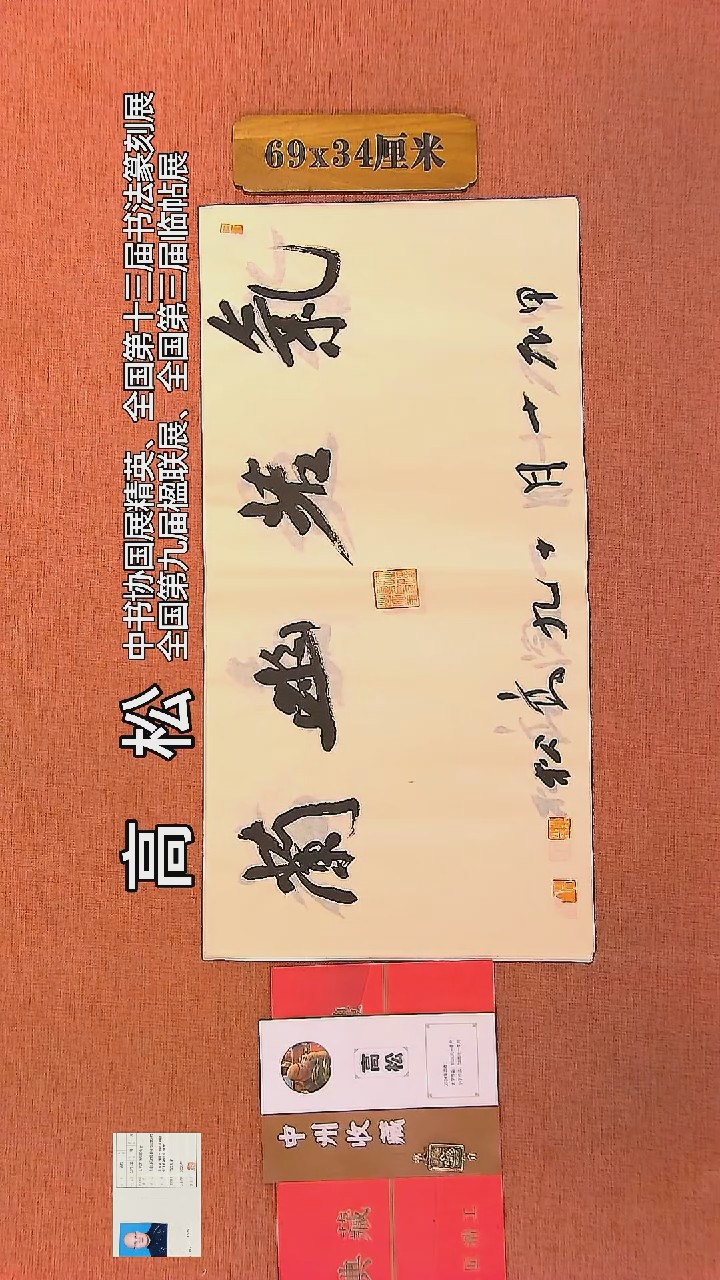 高 松
中书协国展精英、全国第十三届书法篆刻展
全国第九届楹联展、全国第三届临帖展
69x34厘米
氣若幽蘭
甲辰十月十九高松
高松
中州收藏
典藏